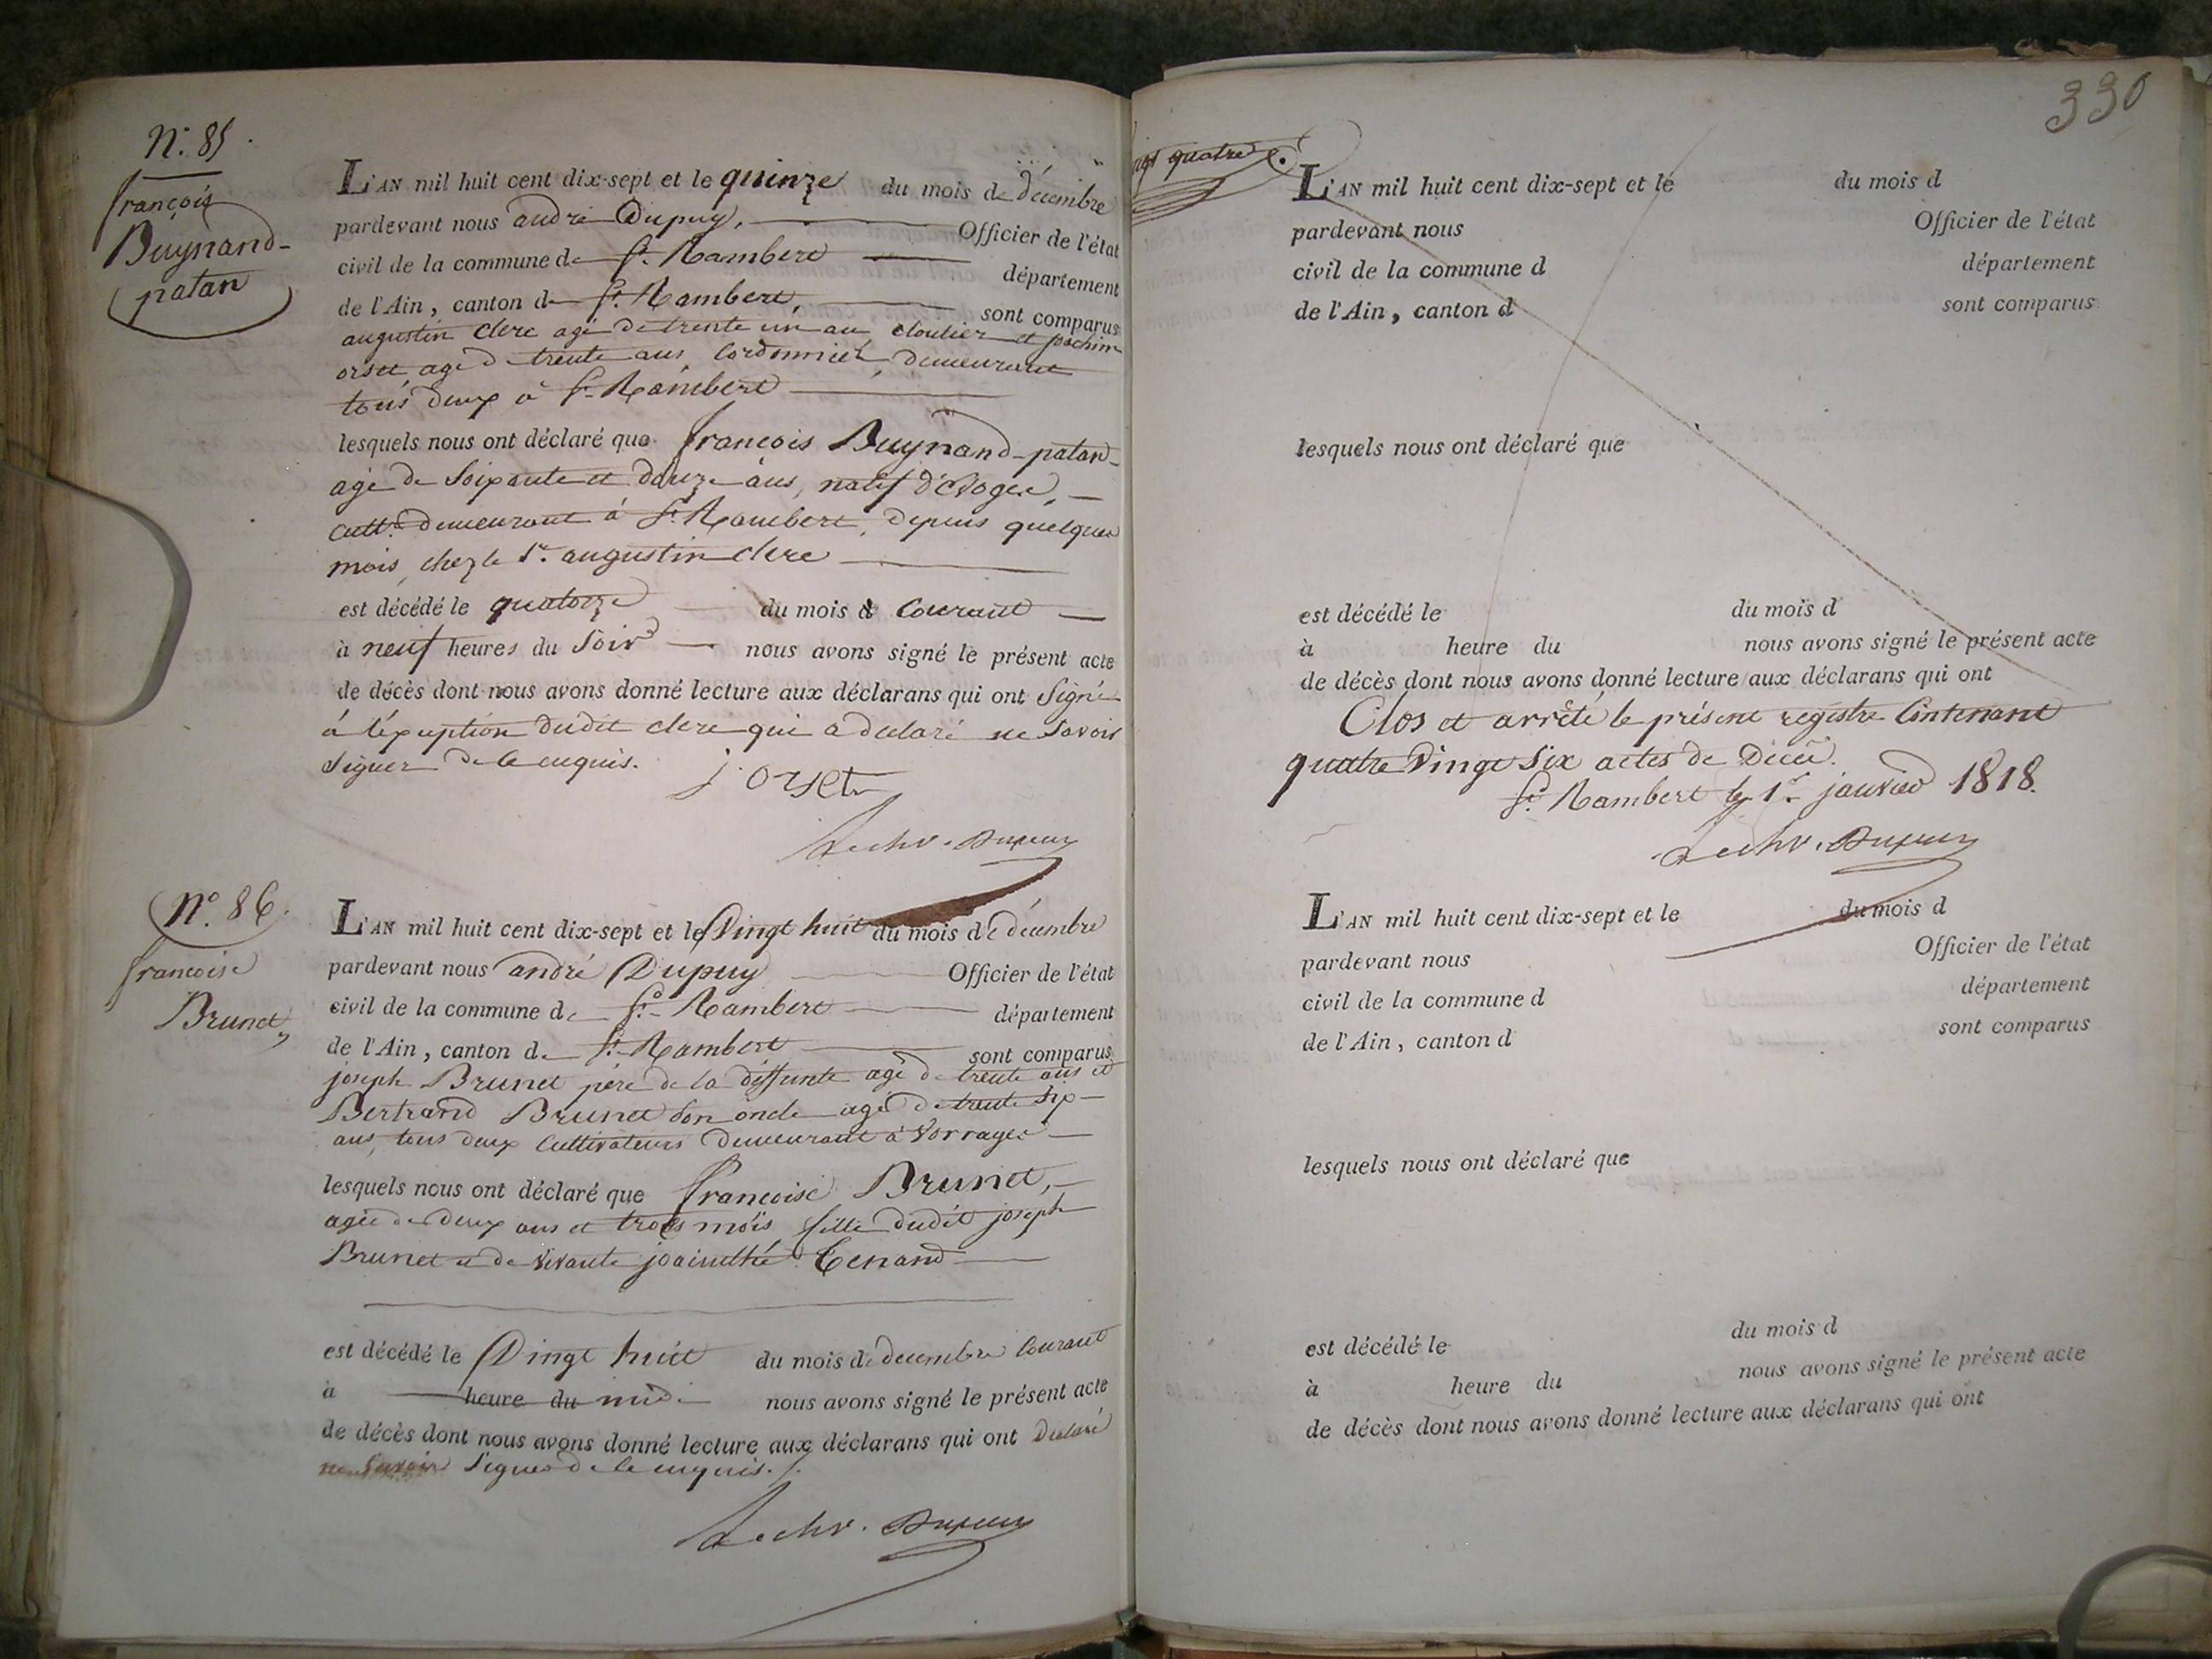 N.º 85.
françois
Buynand-
patan
L'AN mil huit cent dix-sept et le quinze du mois de décembre
pardevant nous andré Dupuy, Officier de l'état
civil de la commune de St. Rambert département
de l'Ain, canton de St. Rambert, sont comparus
augustin clerc agé de trente un ans, cloutier et joachim
orset agé de trente ans, Cordonnier, demeurant
tous deux à St. Rambert
lesquels nous ont déclaré que françois Buynand-patan-
agé de Soixante et douze ans, natif d'Evoges,
cultr. demeurant à St. Rambert, depuis quelques
mois, chez le Sr. augustin clerc
est décédé le quatorze du mois d courant
à neuf heures du Soir nous avons signé le présent acte
de décès dont nous avons donné lecture aux déclarans qui ont Signé
à l'exception dudit clerc qui a declaré ne Savoir
Signer de ce enquis.
j. orset
Dupuy
N.º 86.
francoise
Brunet
L'AN mil huit cent dix-sept et le Vingt huit du mois de décembre
pardevant nous andré Dupuy Officier de l'état
civil de la commune de St. Rambert département
de l'Ain, canton de St. Rambert sont comparus
joseph Brunet père de la deffunte agé de trente ans et
Bertrand Brunet Son oncle agé de trente Six
ans, tous deux Cultivateurs demeurant à Vorrages
lesquels nous ont déclaré que francoise Brunet,
agée de deux ans et trois mois fille dudit joseph
Brunet et de vivante Tenand
est décédé le Vingt huit du mois de decembre Courant
à heure du midi nous avons signé le présent acte
de décès dont nous avons donné lecture aux déclarans qui ont Declaré
ne Savoir Signer de ce enquis.
Dupuy
330
quatre
L'AN mil huit cent dix-sept et le du mois d
pardevant nous Officier de l'état
civil de la commune d département
de l'Ain, canton d sont comparus
lesquels nous ont déclaré que
est décédé le du mois d
à heure du nous avons signé le présent acte
de décès dont nous avons donné lecture aux déclarans qui ont
Clos et arrêté le présent registre Contenant
quatre Vingt Six actes de Décès.
St. Rambert le 1er janvier 1818.
Dupuy
L'AN mil huit cent dix-sept et le du mois d
pardevant nous Officier de l'état
civil de la commune d département
de l'Ain, canton d sont comparus
lesquels nous ont déclaré que
est décédé le du mois d
à heure du nous avons signé le présent acte
de décès dont nous avons donné lecture aux déclarans qui ont